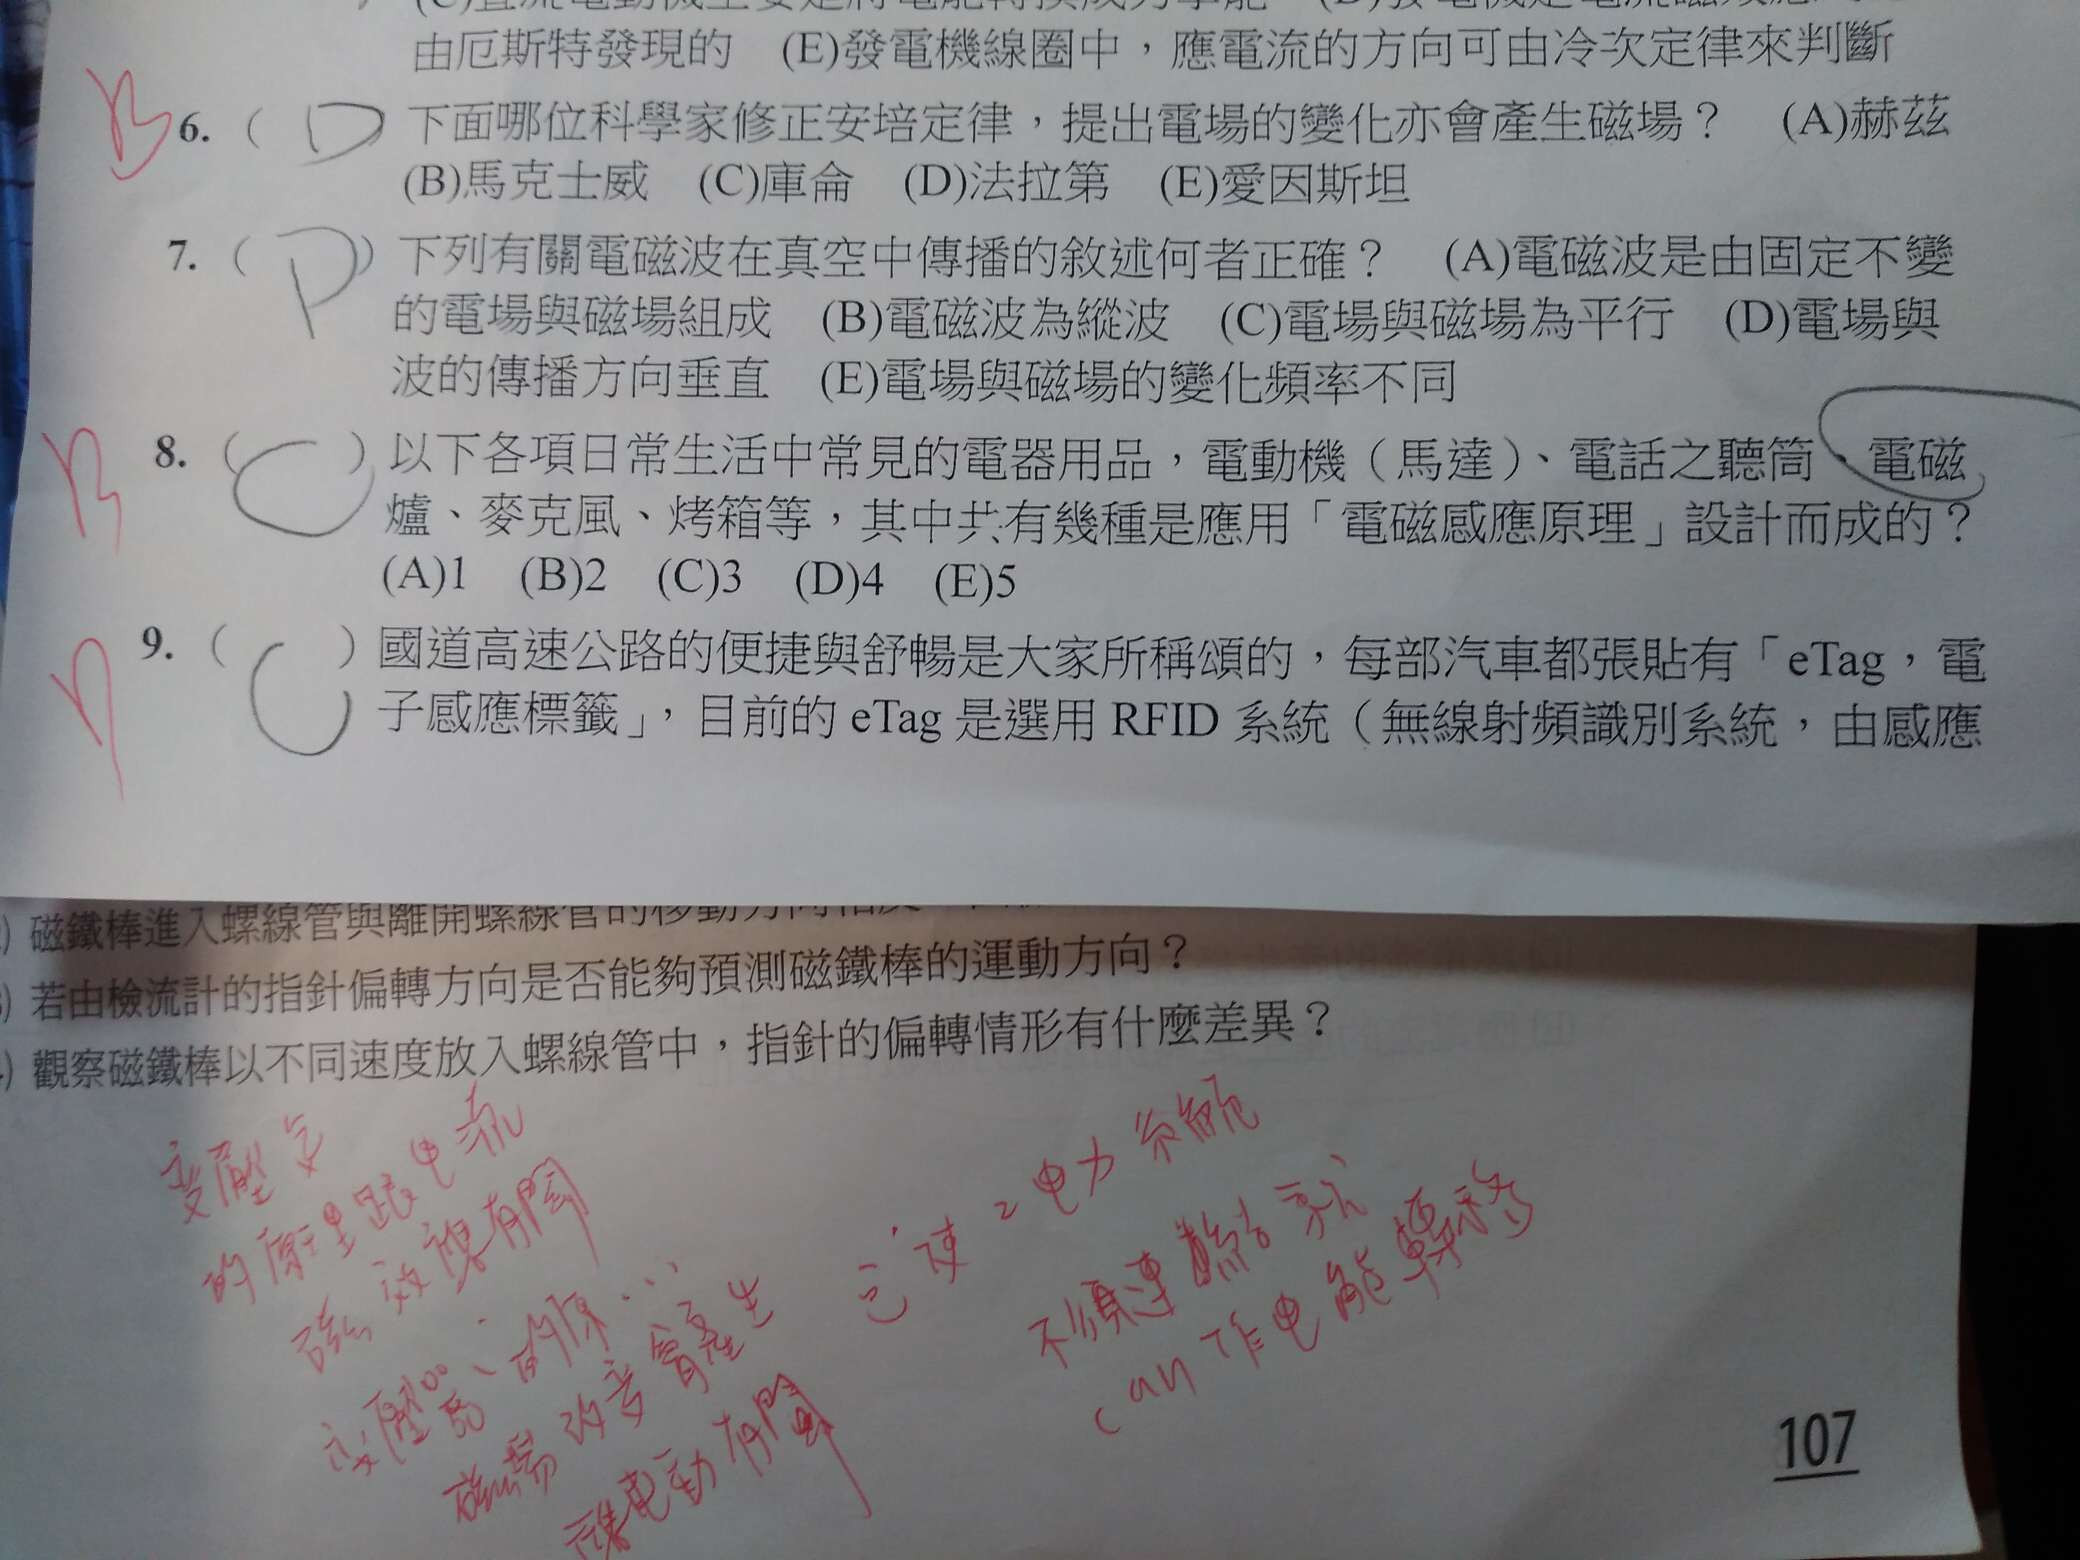 由厄斯特發現的 (E)發電機線圈中，應電流的方向可由冷次定律來判斷
B 6. ( D ) 下面哪位科學家修正安培定律，提出電場的變化亦會產生磁場？ (A)赫茲
(B)馬克士威 (C)庫侖 (D)法拉第 (E)愛因斯坦
7. ( D ) 下列有關電磁波在真空中傳播的敘述何者正確？ (A)電磁波是由固定不變
的電場與磁場組成 (B)電磁波為縱波 (C)電場與磁場為平行 (D)電場與
波的傳播方向垂直 (E)電場與磁場的變化頻率不同
B 8. ( C ) 以下各項日常生活中常見的電器用品，電動機（馬達）、電話之聽筒、電磁
爐、麥克風、烤箱等，其中共有幾種是應用「電磁感應原理」設計而成的？
(A)1 (B)2 (C)3 (D)4 (E)5
9. ( C ) 國道高速公路的便捷與舒暢是大家所稱頌的，每部汽車都張貼有「eTag，電
子感應標籤」，目前的 eTag 是選用 RFID 系統（無線射頻識別系統，由感應
) 磁鐵棒進入螺線管與離開螺線管的移動方向相反
) 若由檢流計的指針偏轉方向是否能夠預測磁鐵棒的運動方向？
) 觀察磁鐵棒以不同速度放入螺線管中，指針的偏轉情形有什麼差異？
变壓
的原理跟电流
磁效應有関
变壓器
磁場改变會產生
電動有関
使2电力系統
不須連結就
can 作电能轉移
107